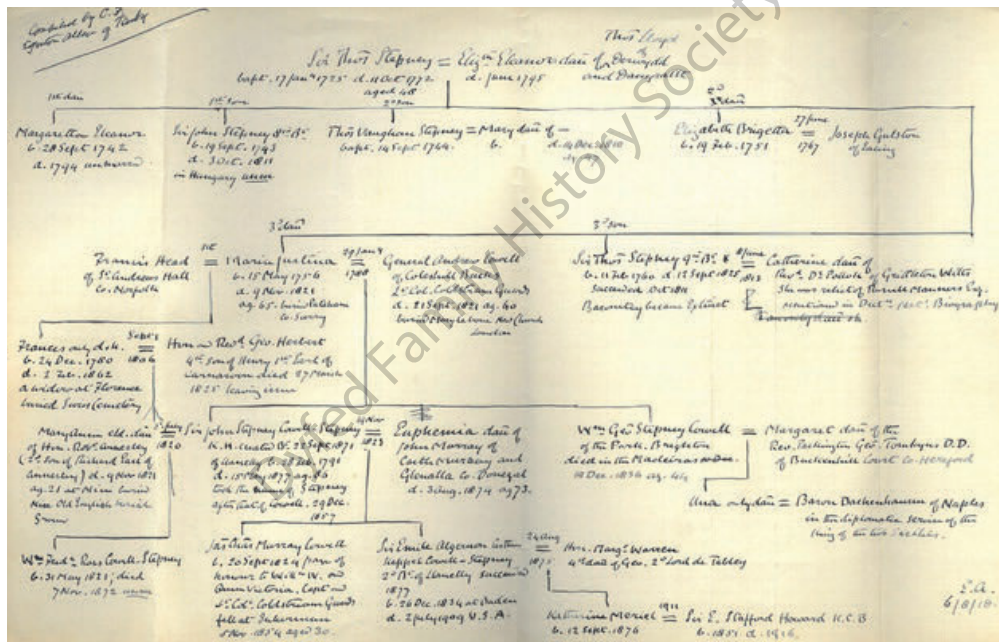 Compiled by C. F.
Egerton Allen of Tenby
Sir Thos Stepney = Elizth Eleanor dau of Thos Lloyd of Derwydd and Danyrallt
bapt. 17 Jany 1725 d. 4 Oct 1772 aged 48
d. June 1795
1st dau
Margaretta Eleanor
b. 28 Sept 1742
d. 1794 unmarried
1st son
Sir John Stepney 8th Bt
b. 19 Sept. 1743
d. 3 Oct. 1811
in Hungary unm
2nd son
Thos Vaughan Stepney = Mary dau of —
bapt. 14 Sept 1744.
b.
d. 14 Dec 1810
2nd dau
Elizabeth Brigetta 27 June 1767 = Joseph Gulston of Ealing
b. 19 Feb. 1751
Francis Head
of St Andrews Hall
Co. Norfolk
1st
3rd dau
Maria Justina
b. 15 May 1756
d. 9 Nov. 1821
ag. 65. buried
Co. Surrey
29 Jany
1788
General Andrew Cowell
of Coleshill Bucks
Lt Col. Coldstream Guards
d. 21 Sept. 1821 ag. 60
buried Marylebone New Church
London
3rd son
Sir Thos Stepney 9th Bt
b. 11 Feb 1760 d. 12 Sept 1825
succeeded Oct 1811
Baronetcy became extinct
8 June
1813
Catherine dau of
Revd Dr Pollok of Grittleton Wilts
She was relict of Russell Manners Esq.
mentioned in Dictn Natl Biography
Frances only d. h.
b. 24 Dec. 1780
d. 2 Feb. 1862
a widow at Florence
buried Swiss Cemetery
Sept
1806
Hon and Revd Geo. Herbert
4th son of Henry 1st Earl of
Carnarvon died 27 March
1825 leaving issue
Mary Anne eld. dau
of Hon. Robt Annesley
(2nd son of Richard Earl of
Annesley) d. 9 Nov 1821
ag. 21 at Nice buried
Nice Old English burial
Ground
1820
Sir John Stepney Cowell-Stepney
K.H. created Bt 22 Sept. 1871
of Llanelly b. 28 Feb. 1791
d. 15 May 1877 ag. 86
took the name of Stepney
after that of Cowell. 29 Dec.
1857
14 Nov
1823
Euphemia dau of
John Murray of
Murray and
Glenalla Co. Donegal
d. 3 Aug. 1874 ag 73.
Wm Geo Stepney Cowell
of the Park. Brighton
died in the Madeiras
10 Dec. 1856 ag. 44
Margaret dau of the
Rev. Packington Geo. Tomkyns D.D.
of Buckenhill Court Co. Hereford
only dau = Baron Dachenhausen of Naples
in the diplomatic service of the
King of the two Sicilies.
Wm Fredk Ross Cowell-Stepney
b. 31 May 1821; died
7 Nov. 1872 unm
Murray Cowell
b. 20 Sept 1824 page of
honour to Will IV. and
Queen Victoria, Capt and
Lt Col. Coldstream Guards
fell at Inkermann
5 Nov. 1854 aged 30.
Sir Emile Algernon Arthur
Keppel Cowell-Stepney
2nd Bt of Llanelly succeeded
1877
b. 26 Dec. 1834 at Baden
d. 2 July 1909 U.S.A.
24 Aug
1875
Hon. Margt Warren
4th dau of Geo. 2nd Lord de Tabley
Katherine Meriel 1911 = Sir E. Stafford Howard K.C.B
b. 12 Sept. 1876
b. 1851 d. 1916.
E.A.
6/8/18.
Dyfed Family History Society